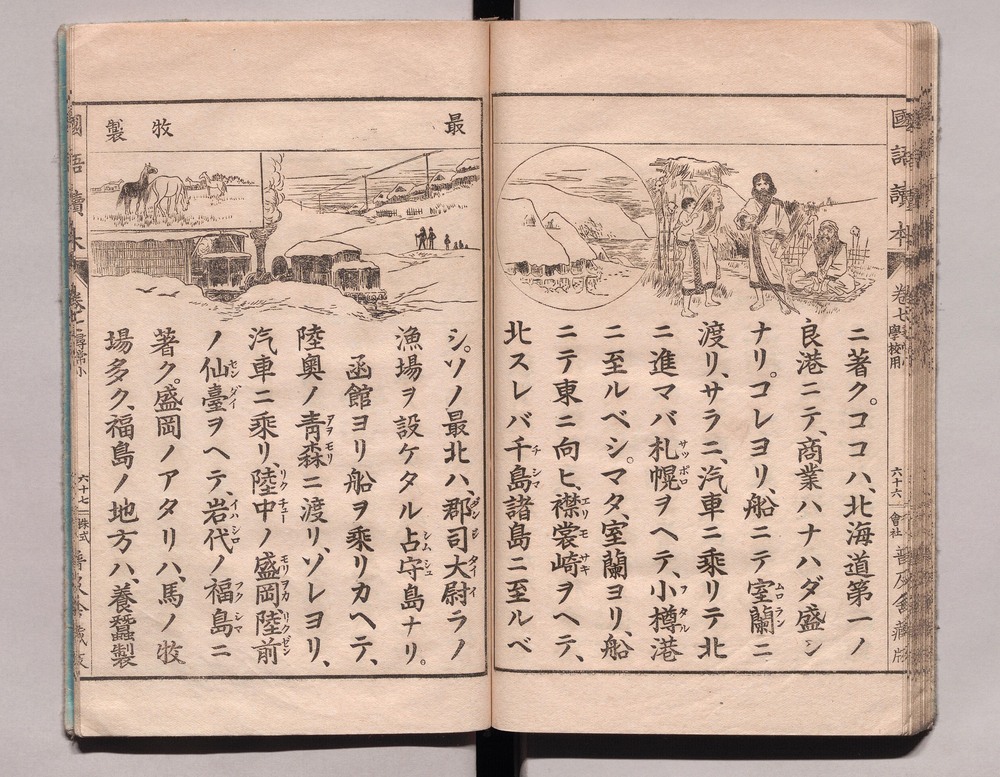 國語讀本
卷七
學校用
六十六
會社
普及舍藏版
ニ著ク。ココハ、北海道第一ノ
良港ニテ、商業ハナハダ盛シ
ナリ。コレヨリ、船ニテ室蘭ニ
渡リ、サラニ、汽車ニ乘リテ北
ニ進マバ札幌ヲヘテ、小樽港
ニ至ルベシ。マタ、室蘭ヨリ、船
ニテ東ニ向ヒ、襟裳崎ヲヘテ、
北スレバ千島諸島ニ至ルベ
最
牧
製
シ。ソノ最北ハ、郡司大尉ラノ
漁場ヲ設ケタル占守島ナリ。
函館ヨリ船ヲ乘リカヘテ、
陸奧ノ靑森ニ渡リ、ソレヨリ、
汽車ニ乘リ、陸中ノ盛岡、陸前
ノ仙臺ヲヘテ、岩代ノ福島ニ
著ク。盛岡ノアタリハ、馬ノ牧
場多ク、福島ノ地方ハ、養蠶製
國語讀本
卷七
尋常小
六十七
株式